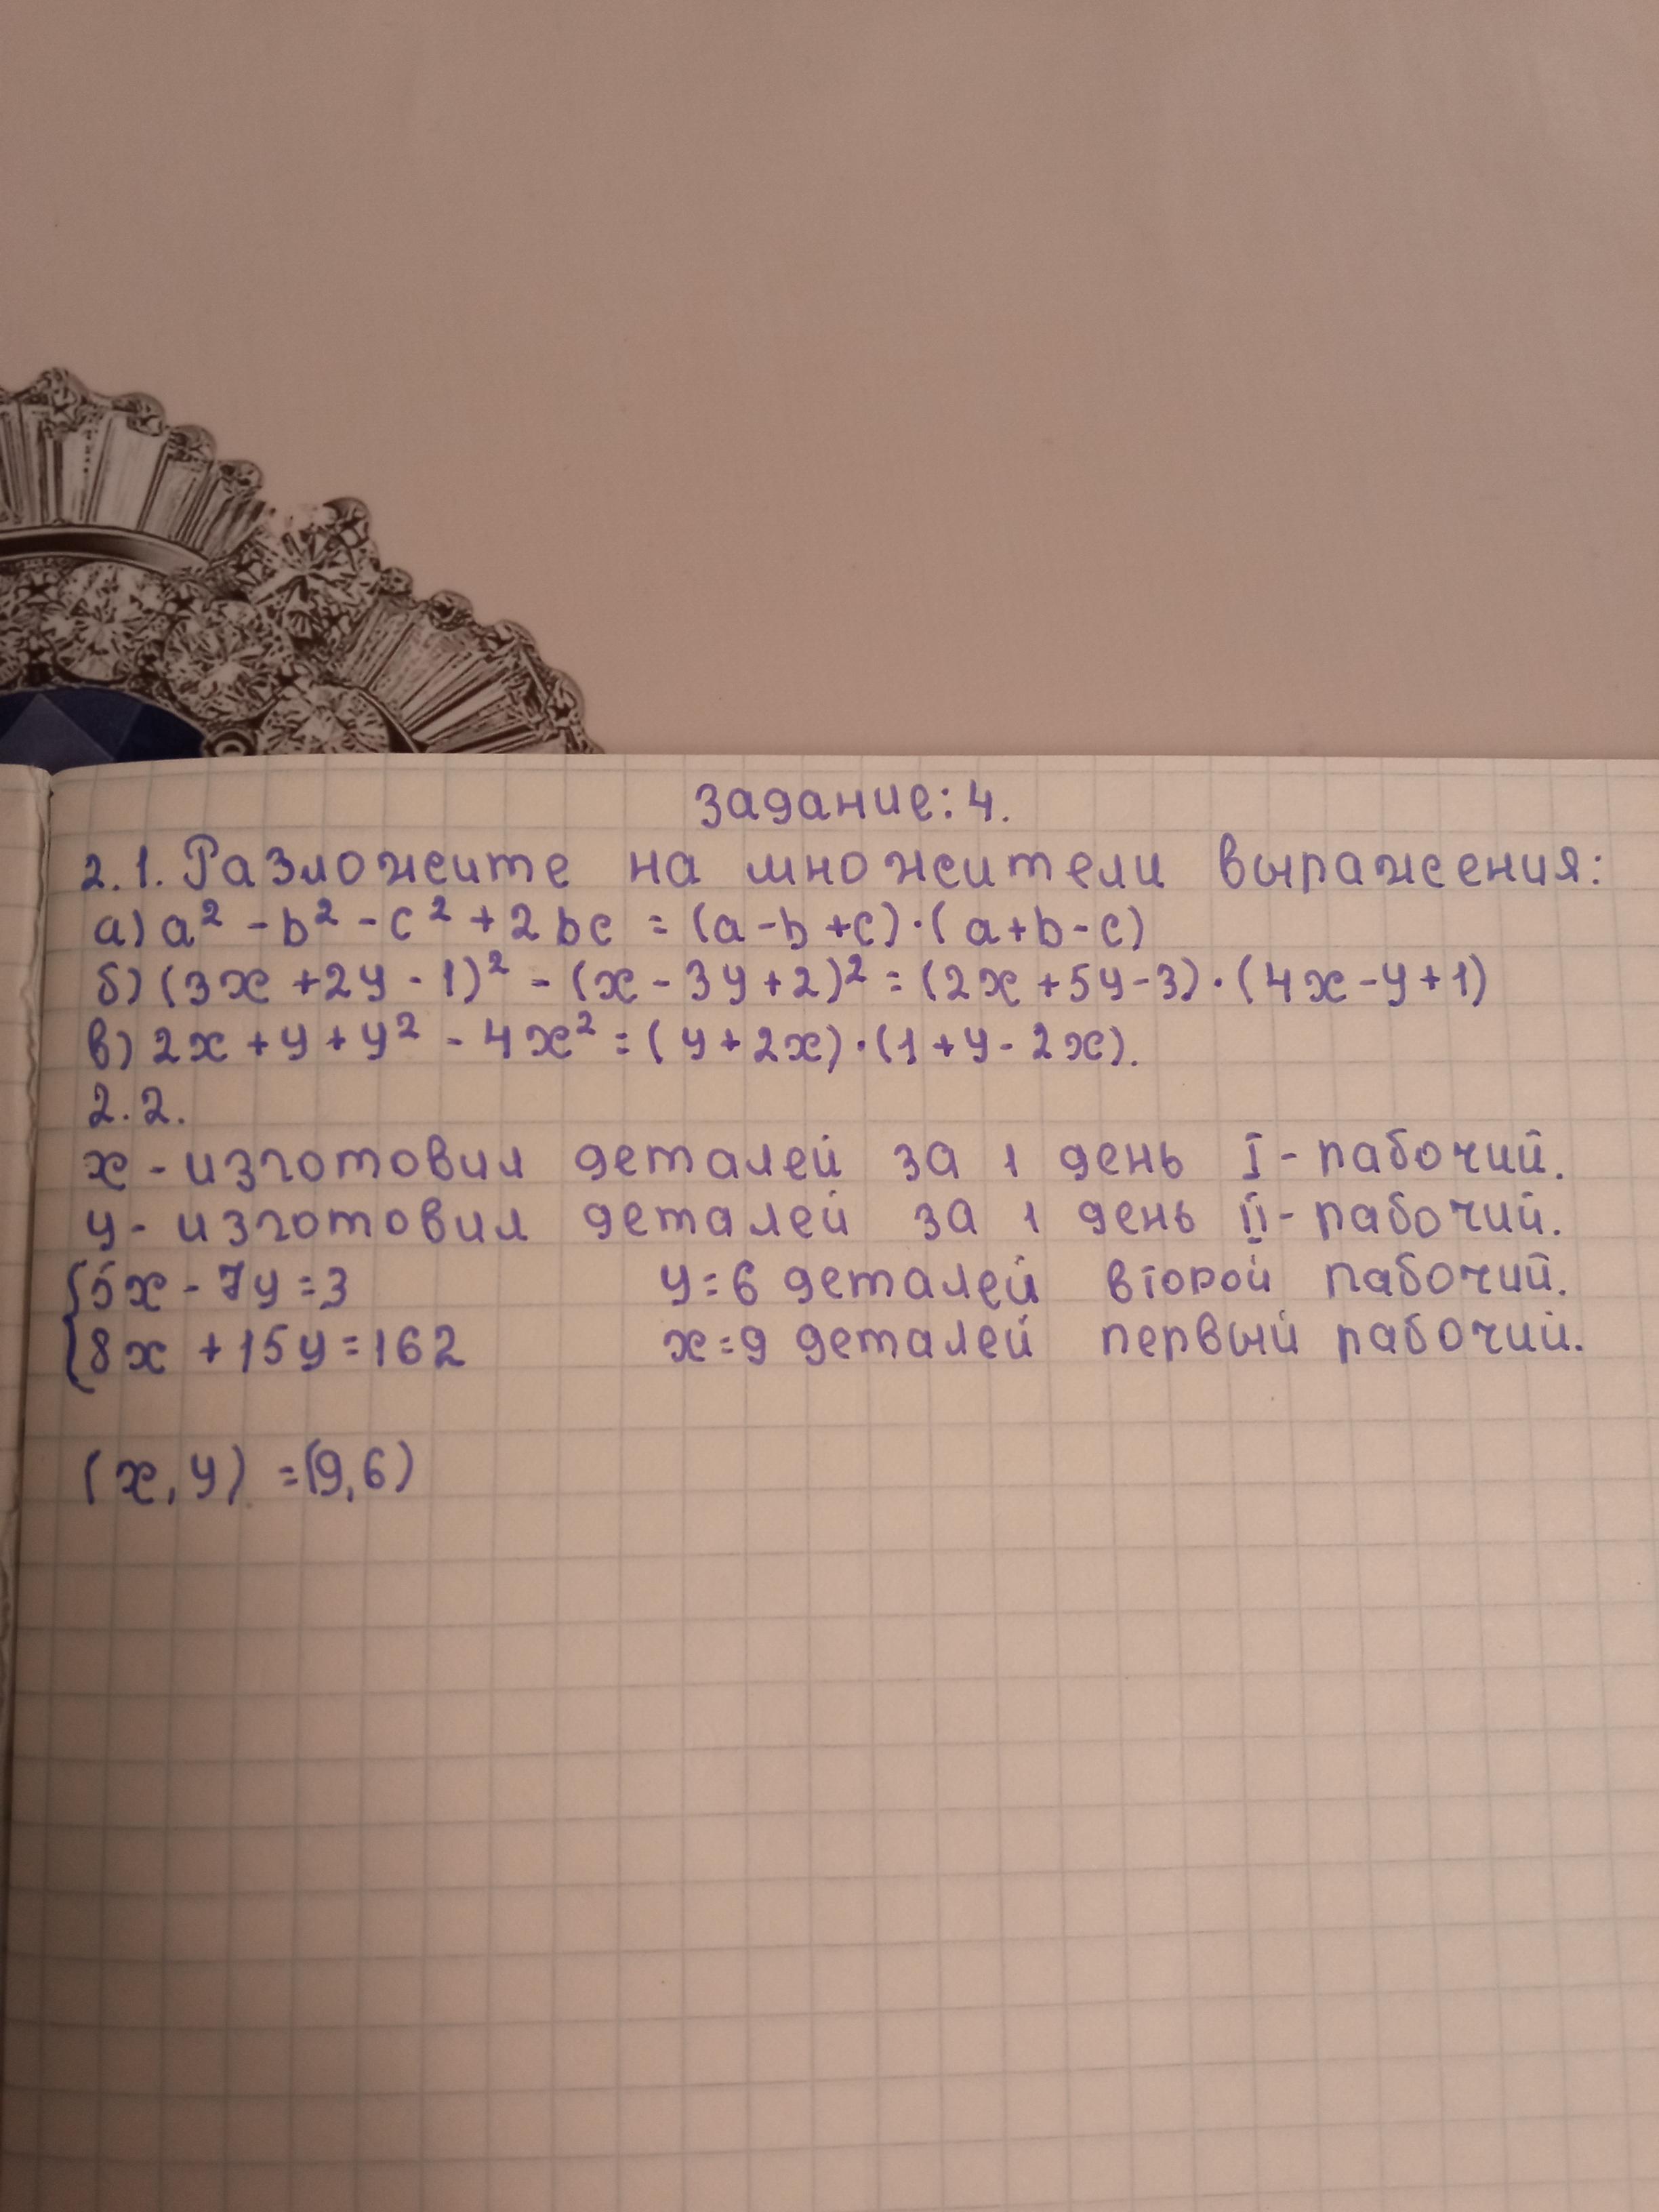 Задание: 4.
2.1. Разложите на множители выражения:
а) a² - b² - c² + 2bc = (a - b + c) · (a + b - c)
б) (3x + 2y - 1)² - (x - 3y + 2)² = (2x + 5y - 3) · (4x - y + 1)
в) 2x + y + y² - 4x² = (y + 2x) · (1 + y - 2x).
2.2.
x - изготовил деталей за 1 день I - рабочий.
y - изготовил деталей за 1 день II - рабочий.
{5x - 7y = 3 y = 6 деталей второй рабочий.
{8x + 15y = 162 x = 9 деталей первый рабочий.
(x, y) = (9, 6)